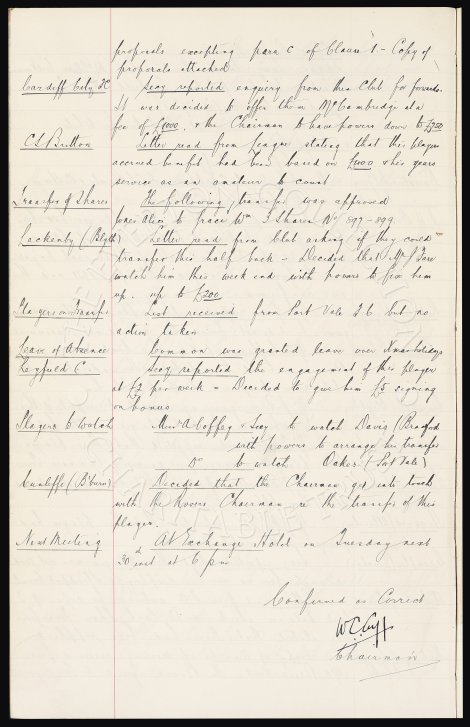 proposals excepting para C of Clause 1 - Copy of
proposals attached
Cardiff City FC Secy reported enquiry from this Club for forwards.
It was decided to offer them McCambridge at a
fee of £1000. & the Chairman to have powers down to £750
C S Britton Letter read from League stating that this players
accrued benefit had been based on £1000 & his years
service as an amateur to count
Transfer of Shares The following transfer was approved
Jones Alice to Grace Wm 3 Shares No 897-899
Lackenby (Blyth) Letter read from Club asking if they could
transfer this half back - Decided that Mr
watch him this week end with powers to fix him
up. up to £200
Players on Transfer List received from Port Vale F.C. but no
action taken
Leave of Absence Common was granted leave over Xmas holidays
Leyfield C Secy reported the engagement of this player
at £2 per week - Decided to give him £5 signing
on bonus
Players to Watch Messrs A Coffey & Secy to watch Davis (Bradford
with powers to arrange his transfer
Do to watch Oakes (Port Vale)
Cunliffe (B'burn) Decided that the Chairman get into touch
with the Rovers Chairman re the transfer of this
player.
Next Meeting At Exchange Hotel on Tuesday next
30 inst at 6 pm
Confirmed as Correct
W.C. Cuff
Chairman